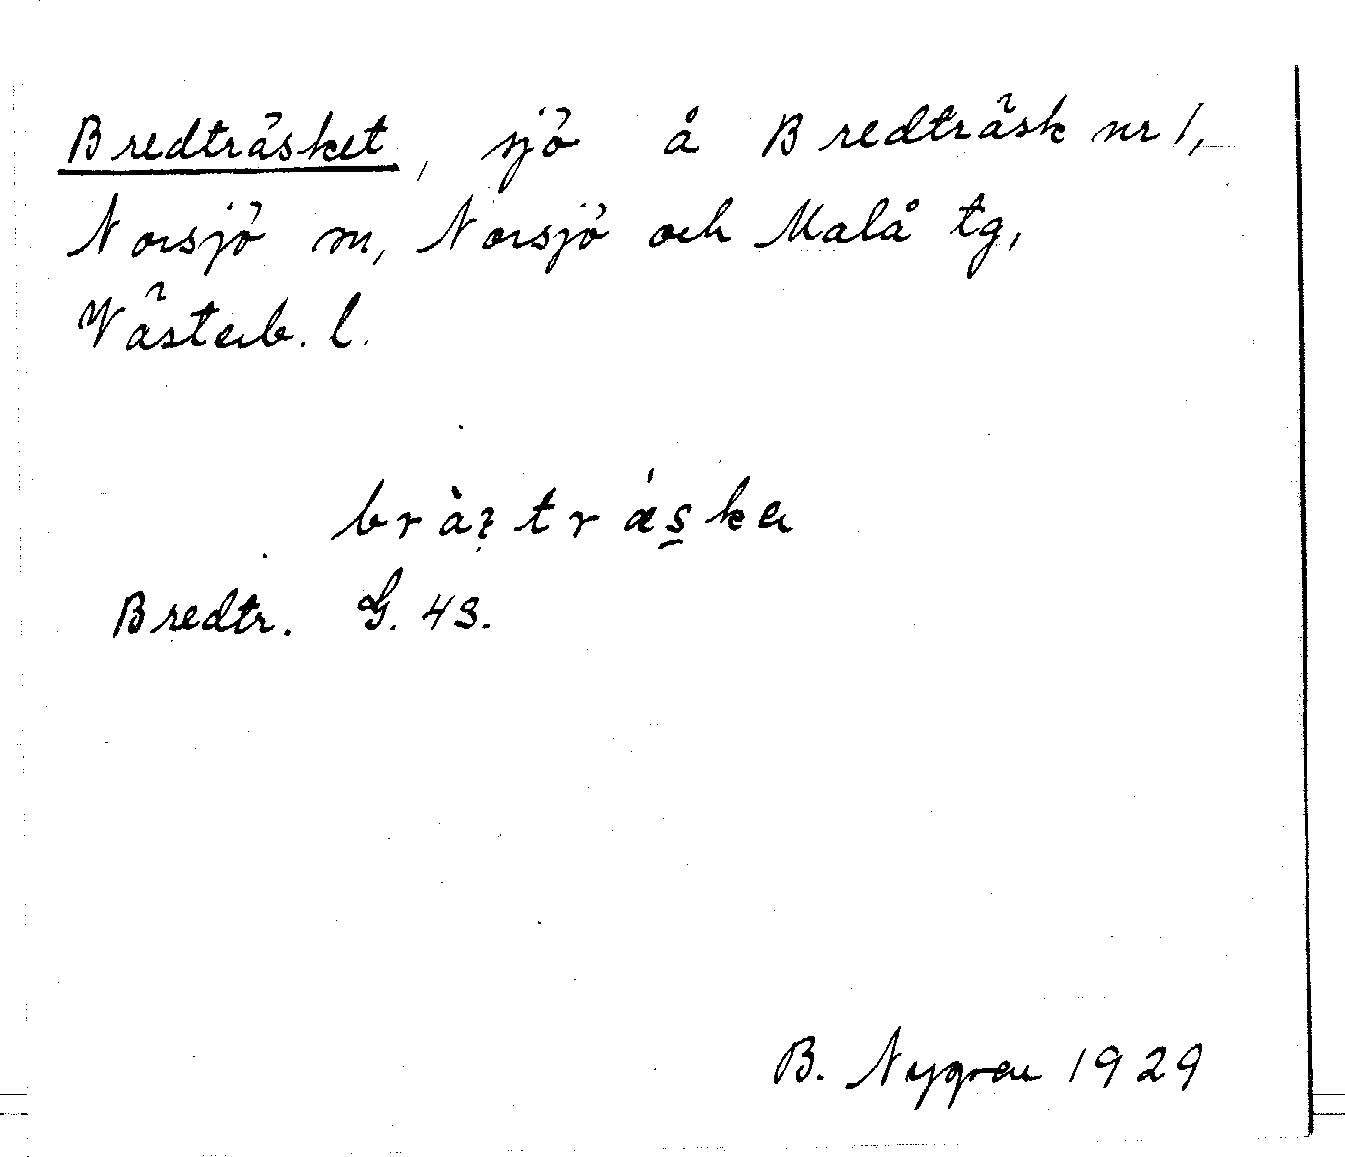 Bredträsket, sjö å Bredträsk nr 1,
Norsjö sn, Norsjö och Malå tg,
Västerb. l.
Bredtr. G. 43.
B. Nygren 1929